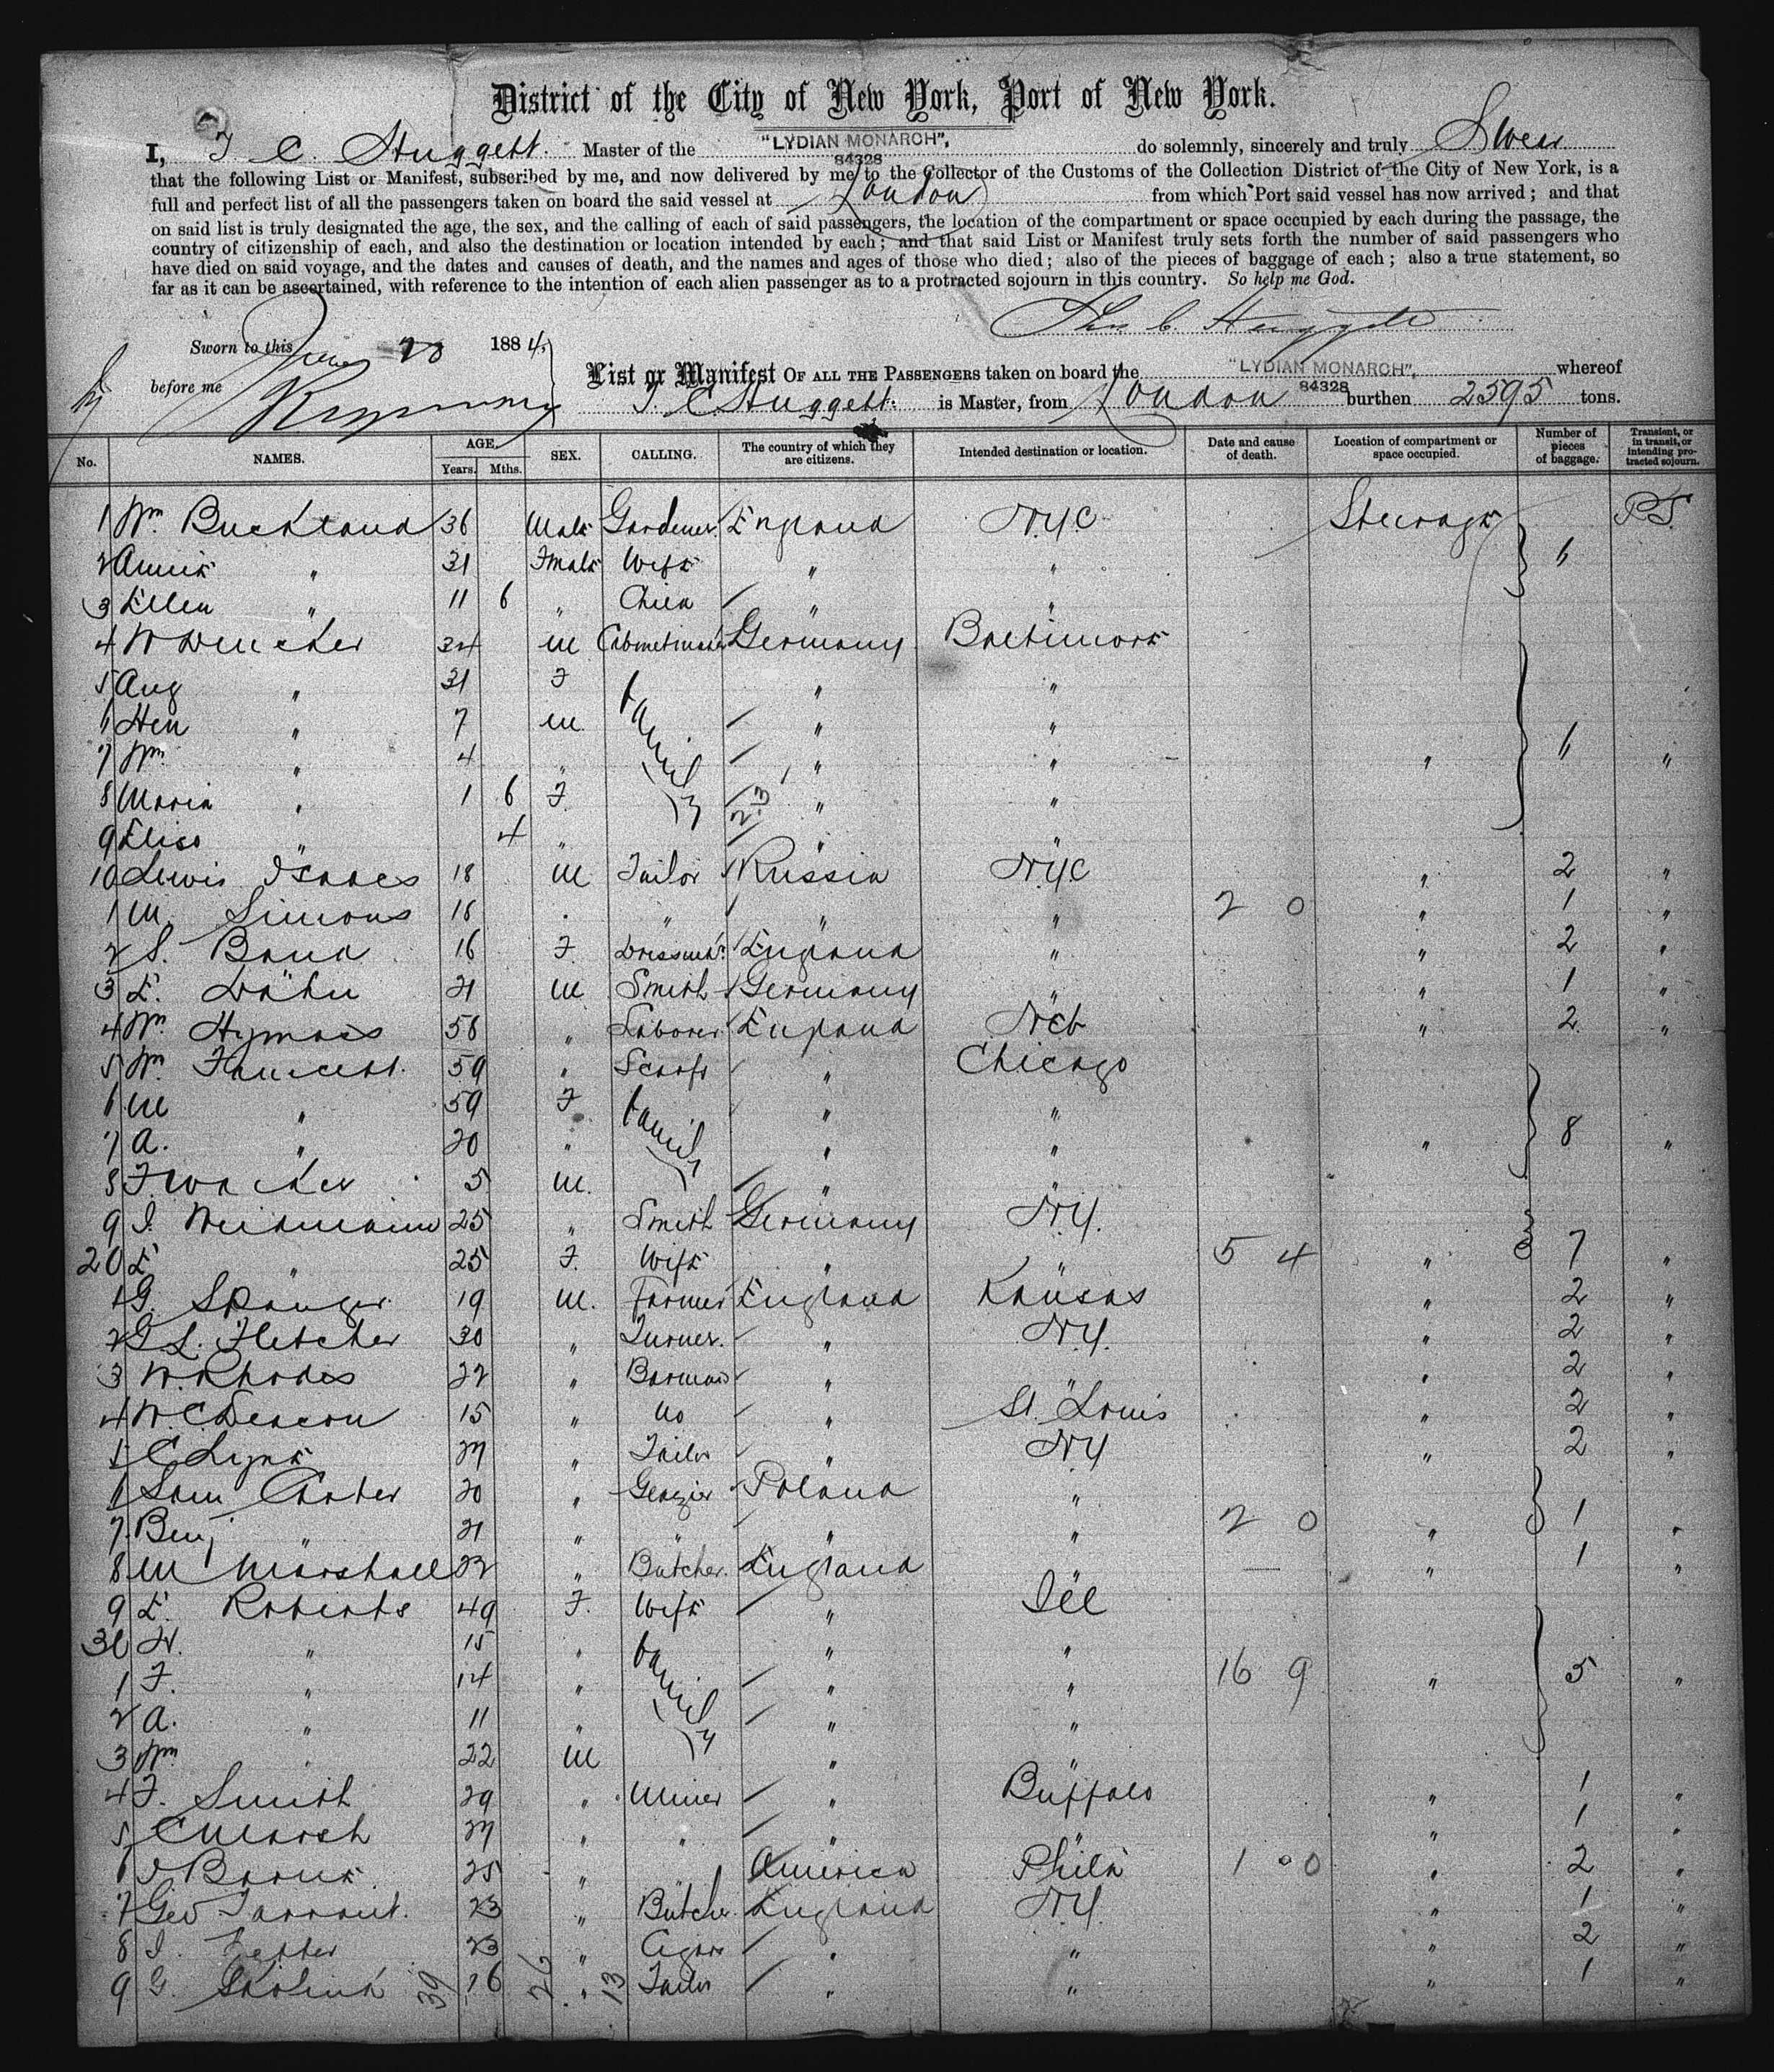 District of the City of New York, Port of New York.
I, T. C. Huggett. Master of the "LYDIAN MONARCH", 84328 do solemnly, sincerely and truly Swear
that the following List or Manifest, subscribed by me, and now delivered by me to the Collector of the Customs of the Collection District of the City of New York, is a
full and perfect list of all the passengers taken on board the said vessel at London from which Port said vessel has now arrived; and that
on said list is truly designated the age, the sex, and the calling of each of said passengers, the location of the compartment or space occupied by each during the passage, the
country of citizenship of each, and also the destination or location intended by each; and that said List or Manifest truly sets forth the number of said passengers who
have died on said voyage, and the dates and causes of death, and the names and ages of those who died; also of the pieces of baggage of each; also a true statement, so
far as it can be ascertained, with reference to the intention of each alien passenger as to a protracted sojourn in this country. So help me God.
Thos C. Huggett
Sworn to this June 20 1884
before me
List or Manifest OF ALL THE PASSENGERS taken on board the "LYDIAN MONARCH", 84328 whereof
T. C Huggett. is Master, from London burthen 2595 tons.
No. NAMES. AGE. Years. Mths. SEX. CALLING. The country of which they are citizens. Intended destination or location. Date and cause of death. Location of compartment or space occupied. Number of pieces of baggage. Transient, or in transit, or intending protracted sojourn.
1 Wm Buckland 36 Male Gardener England N.Y.C Steerage PS.
2 Annie " 31 Fmale Wife " " 6
3 Ellen " 11 6 " Child " "
4 W Dencker 34 M Cabinetmaker Germany Baltimore
5 Aug " 31 F family " "
6 Hen " 7 M " "
7 Wm " 4 " " " " 6 "
8 Maria " 1 6 F. " "
9 Elise " 4 " " "
10 Lewis Isaacs 18 M Tailor Russia N.Y.C " 2 "
1 M. Simons 18 " " " " 2 0 " 1 "
2 S. Band 16 F. Dressmkr. England " " 2 "
3 E. Dähn 21 M Smith Germany " " 1 "
4 Wm Hymass 58 " Laborer England Neb " 2 "
5 Wm Fawcett. 59 " " Chicago
6 M " 59 F family " "
7 A. " 20 " " " " 8 "
8 F. Wacker 5 M. " "
9 I. Weidmann 25 " Smith Germany N.Y.
20 E " 25 F. Wife " " 5 4 " 7 "
1 G. Spanger 19 M. Farmer England Kansas " 2 "
2 G L. Fletcher 30 " Turner. " N.Y. " 2 "
3 W. Rhodes 22 " Barman " " " 2 "
4 W C Deacon 15 " no " St. Louis " 2 "
5 C Lyne " Tailor " N.Y " 2 "
6 Sam Carter 20 " Glazier Poland "
7 Benj " 21 " " " " 2 0 " 1 "
8 M Marshall " Butcher. England " 1 "
9 E. Roberts 49 F. Wife " Ill
30 " 15 " family " "
1 F. " 14 " " " 16 9 " 5 "
2 A. " 11 " " "
3 Wm " 22 M " "
4 F. Smith 29 " Miner " Buffalo " 1 "
5 C Marsh " " " " " 1 "
6 25 " America Phila 1 0 0 " 2 "
7 Geo Tarrant. 23 " Butcher. England N.Y. " 1 "
8 23 " Cigar " " " 2 "
9 G. 39 16 26 " 13 Tailor " " " 1 "